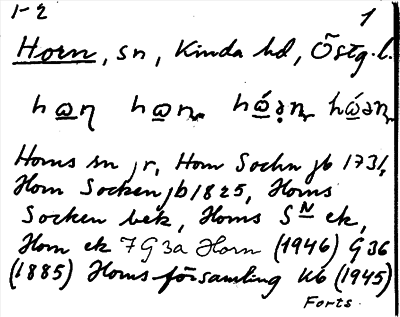 1-2 1
Horn, sn, Kinda hd, Östg. l.
Horns sn jr, Horn Sochn jb 1731,
Horn Socken jb 1825, Horns
Socken bek, Horns SN ek,
Horn ek 7 G 3a Horn (1946) G 36
(1885) Horns församling Kb (1945)
Forts.